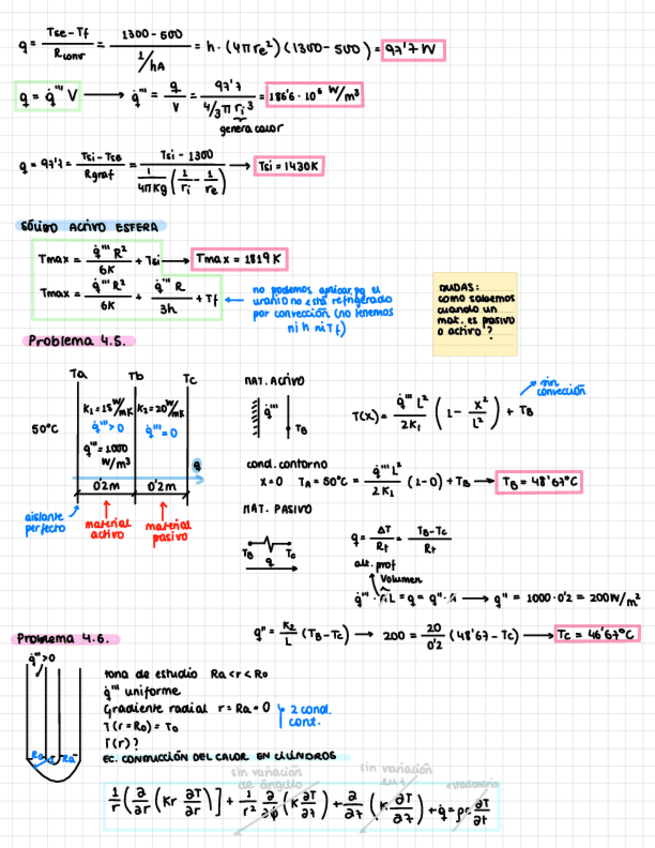 q = Tse-Tf / Rconv = 1300-500 / 1/hA = h·(4πre²)(1300-500) = 97'7 W
q = q̇''' V → q̇''' = q/V = 97'7 / 4/3 π ri³ = 186'6·10⁶ W/m³
genera calor
q = 97'7 = Tsi-Tse / Rgraf = Tsi-1300 / 1/4πKg (1/ri - 1/re) → Tsi = 1430K
SÓLIDO ACTIVO ESFERA
Tmax = q̇''' R² / 6K + Tsi → Tmax = 1819 K
Tmax = q̇''' R² / 6K + q̇''' R / 3h + Tf
no podemos aplicar pq el
uranio no está refrigerado
por convección (no tenemos
ni h ni Tf)
DUDAS:
como sabemos
cuando un
mat. es pasivo
o activo?
Problema 4.5.
Ta Tb Tc
50°C
K1=15W/mK K1=20W/mK
q̇'''>0 q̇'''=0
q̇'''=1000
W/m³
q
0'2m 0'2m
aislante
perfecto
material
activo
material
pasivo
MAT. ACTIVO
q̇'''
TB
T(x) = q̇''' L² / 2K1 (1 - x²/L²) + TB
sin
convección
cond. contorno
x=0 TA = 50°C = q̇''' L² / 2K1 (1-0) + TB → TB = 48'67°C
MAT. PASIVO
TB Tc
q
q = ΔT/Rt = TB-Tc / Rt
alt. prof
Volumen
q̇'''·AL = q = q''·A → q'' = 1000·0'2 = 200W/m²
q'' = K2/L (TB-Tc) → 200 = 20/0'2 (48'67-Tc) → Tc = 46'67°C
Problema 4.6.
q̇'''>0
Ro Ra
zona de estudio Ra<r<Ro
q̇''' uniforme
Gradiente radial r=Ra=0
T(r=Ro) = To
2 cond.
cont.
T(r)?
EC. CONDUCCIÓN DEL CALOR EN CILINDROS
sin variación
de ángulo
sin variación
en z
estacionario
1/r (∂/∂r (Kr ∂T/∂r)] + 1/r² ∂/∂φ (K ∂T/∂z) + ∂/∂z (K ∂T/∂z) + q̇ = ρc ∂T/∂t